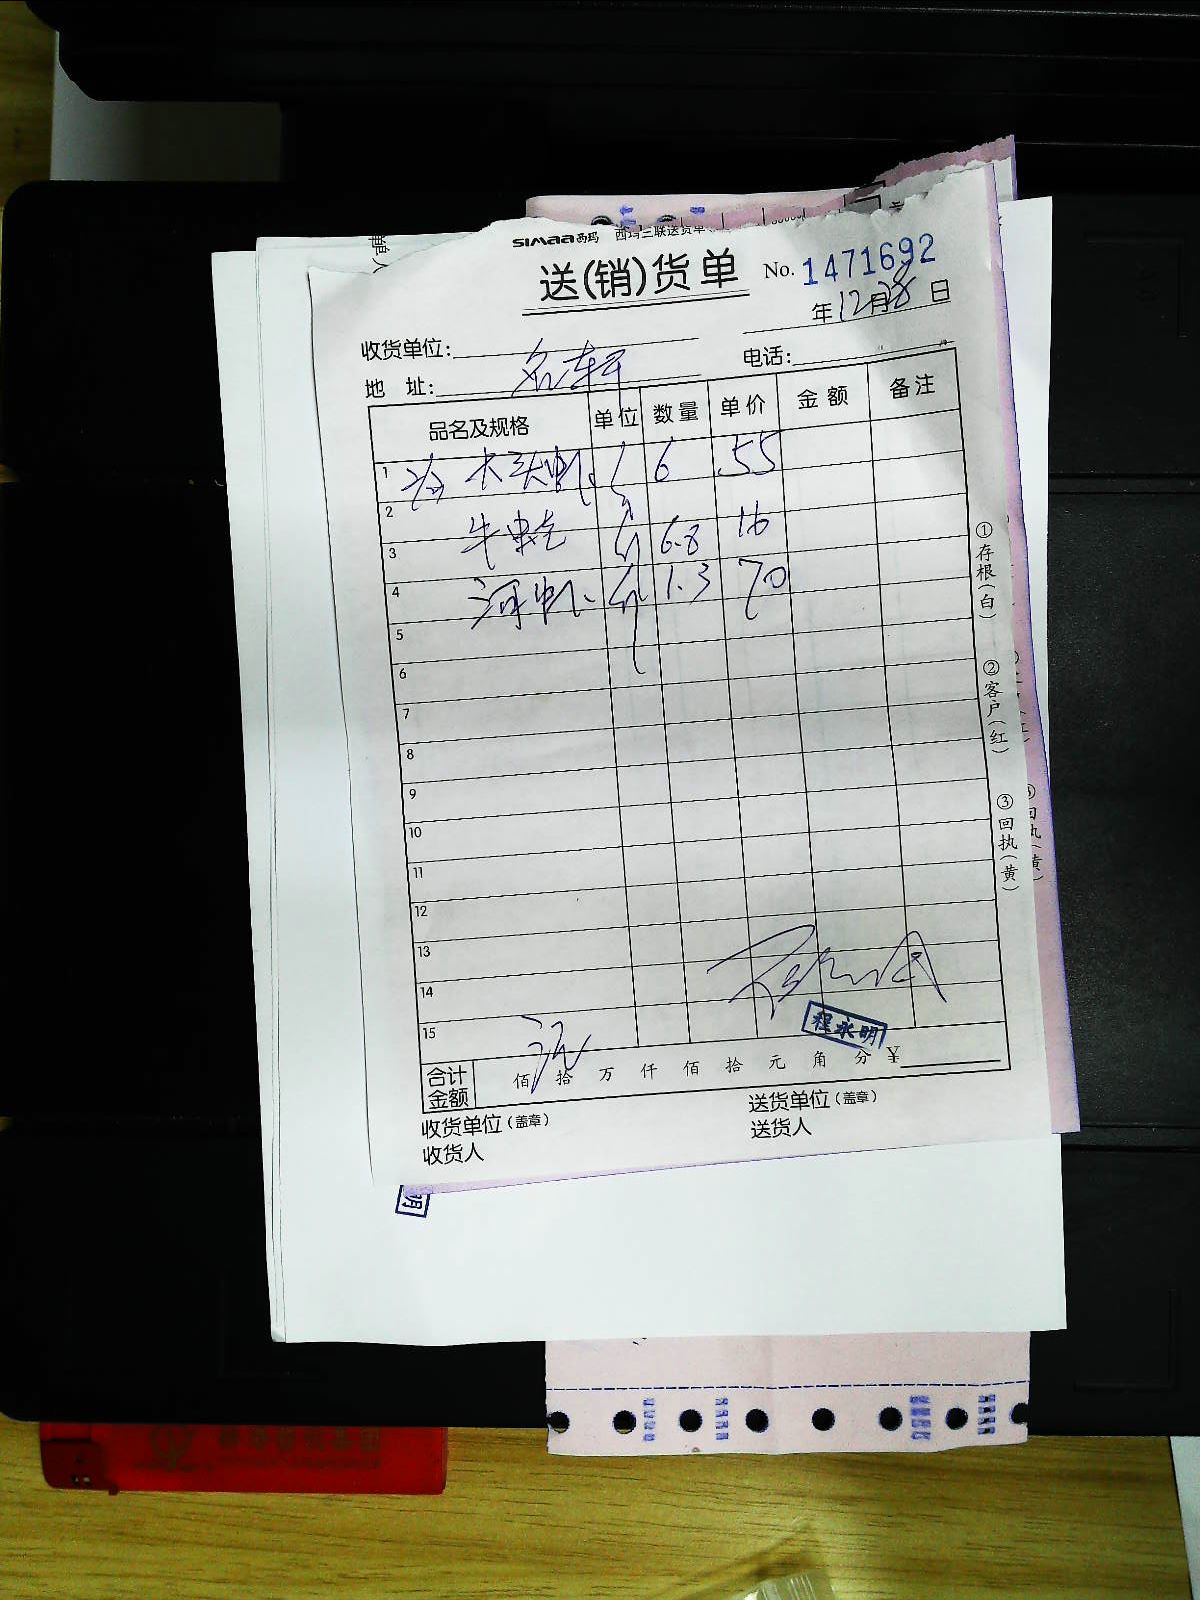 SIMAA西玛 西玛三联送货单
送(销)货单 No. 1471692
年12月28日
收货单位: 电话:
地 址: 名轩
品名及规格 单位 数量 单价 金额 备注
1 活 木头虾 6 55
2
3 牛虫它 斤 6.8 16
4 河虾 斤 1.3 70
5
6
7
8
9
10
11
12
13
14
15
程永明
合计金额 佰 拾 万 仟 佰 拾 元 角 分 ¥
收货单位(盖章) 送货单位(盖章)
收货人 送货人
①存根(白) ②客户(红) ③回执(黄)
明